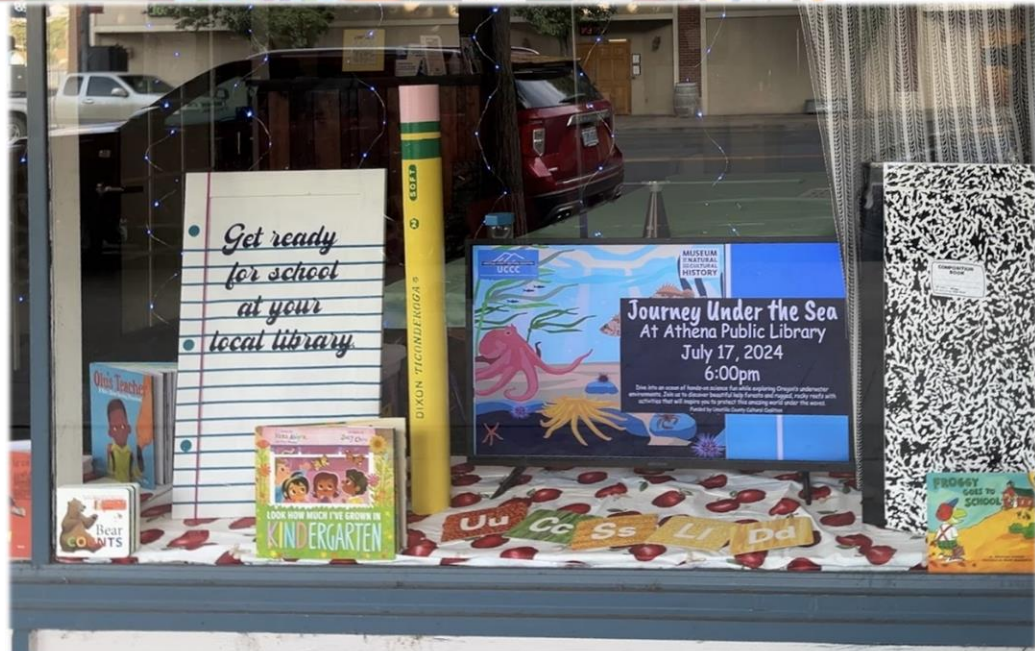 Get ready
for school
at your
local library.
DIXON TICONDEROGA®
2
SOFT
UCCC
MUSEUM
OF NATURAL
AND CULTURAL
HISTORY
Journey Under the Sea
At Athena Public Library
July 17, 2024
6:00pm
Dive into an ocean of hands-on science fun while exploring Oregon's underwater
environments. Join us to discover beautiful kelp forests and rugged, rocky reefs with
activities that will inspire you to protect this amazing world under the waves.
Funded by Umatilla County Cultural Coalition
COMPOSITION
BOOK
Bear
COUNTS
LOOK HOW MUCH I'VE GROWN IN
KINDERGARTEN
Uu
Cc
Ss
Ll
Dd
FROGGY
GOES TO
SCHOOL